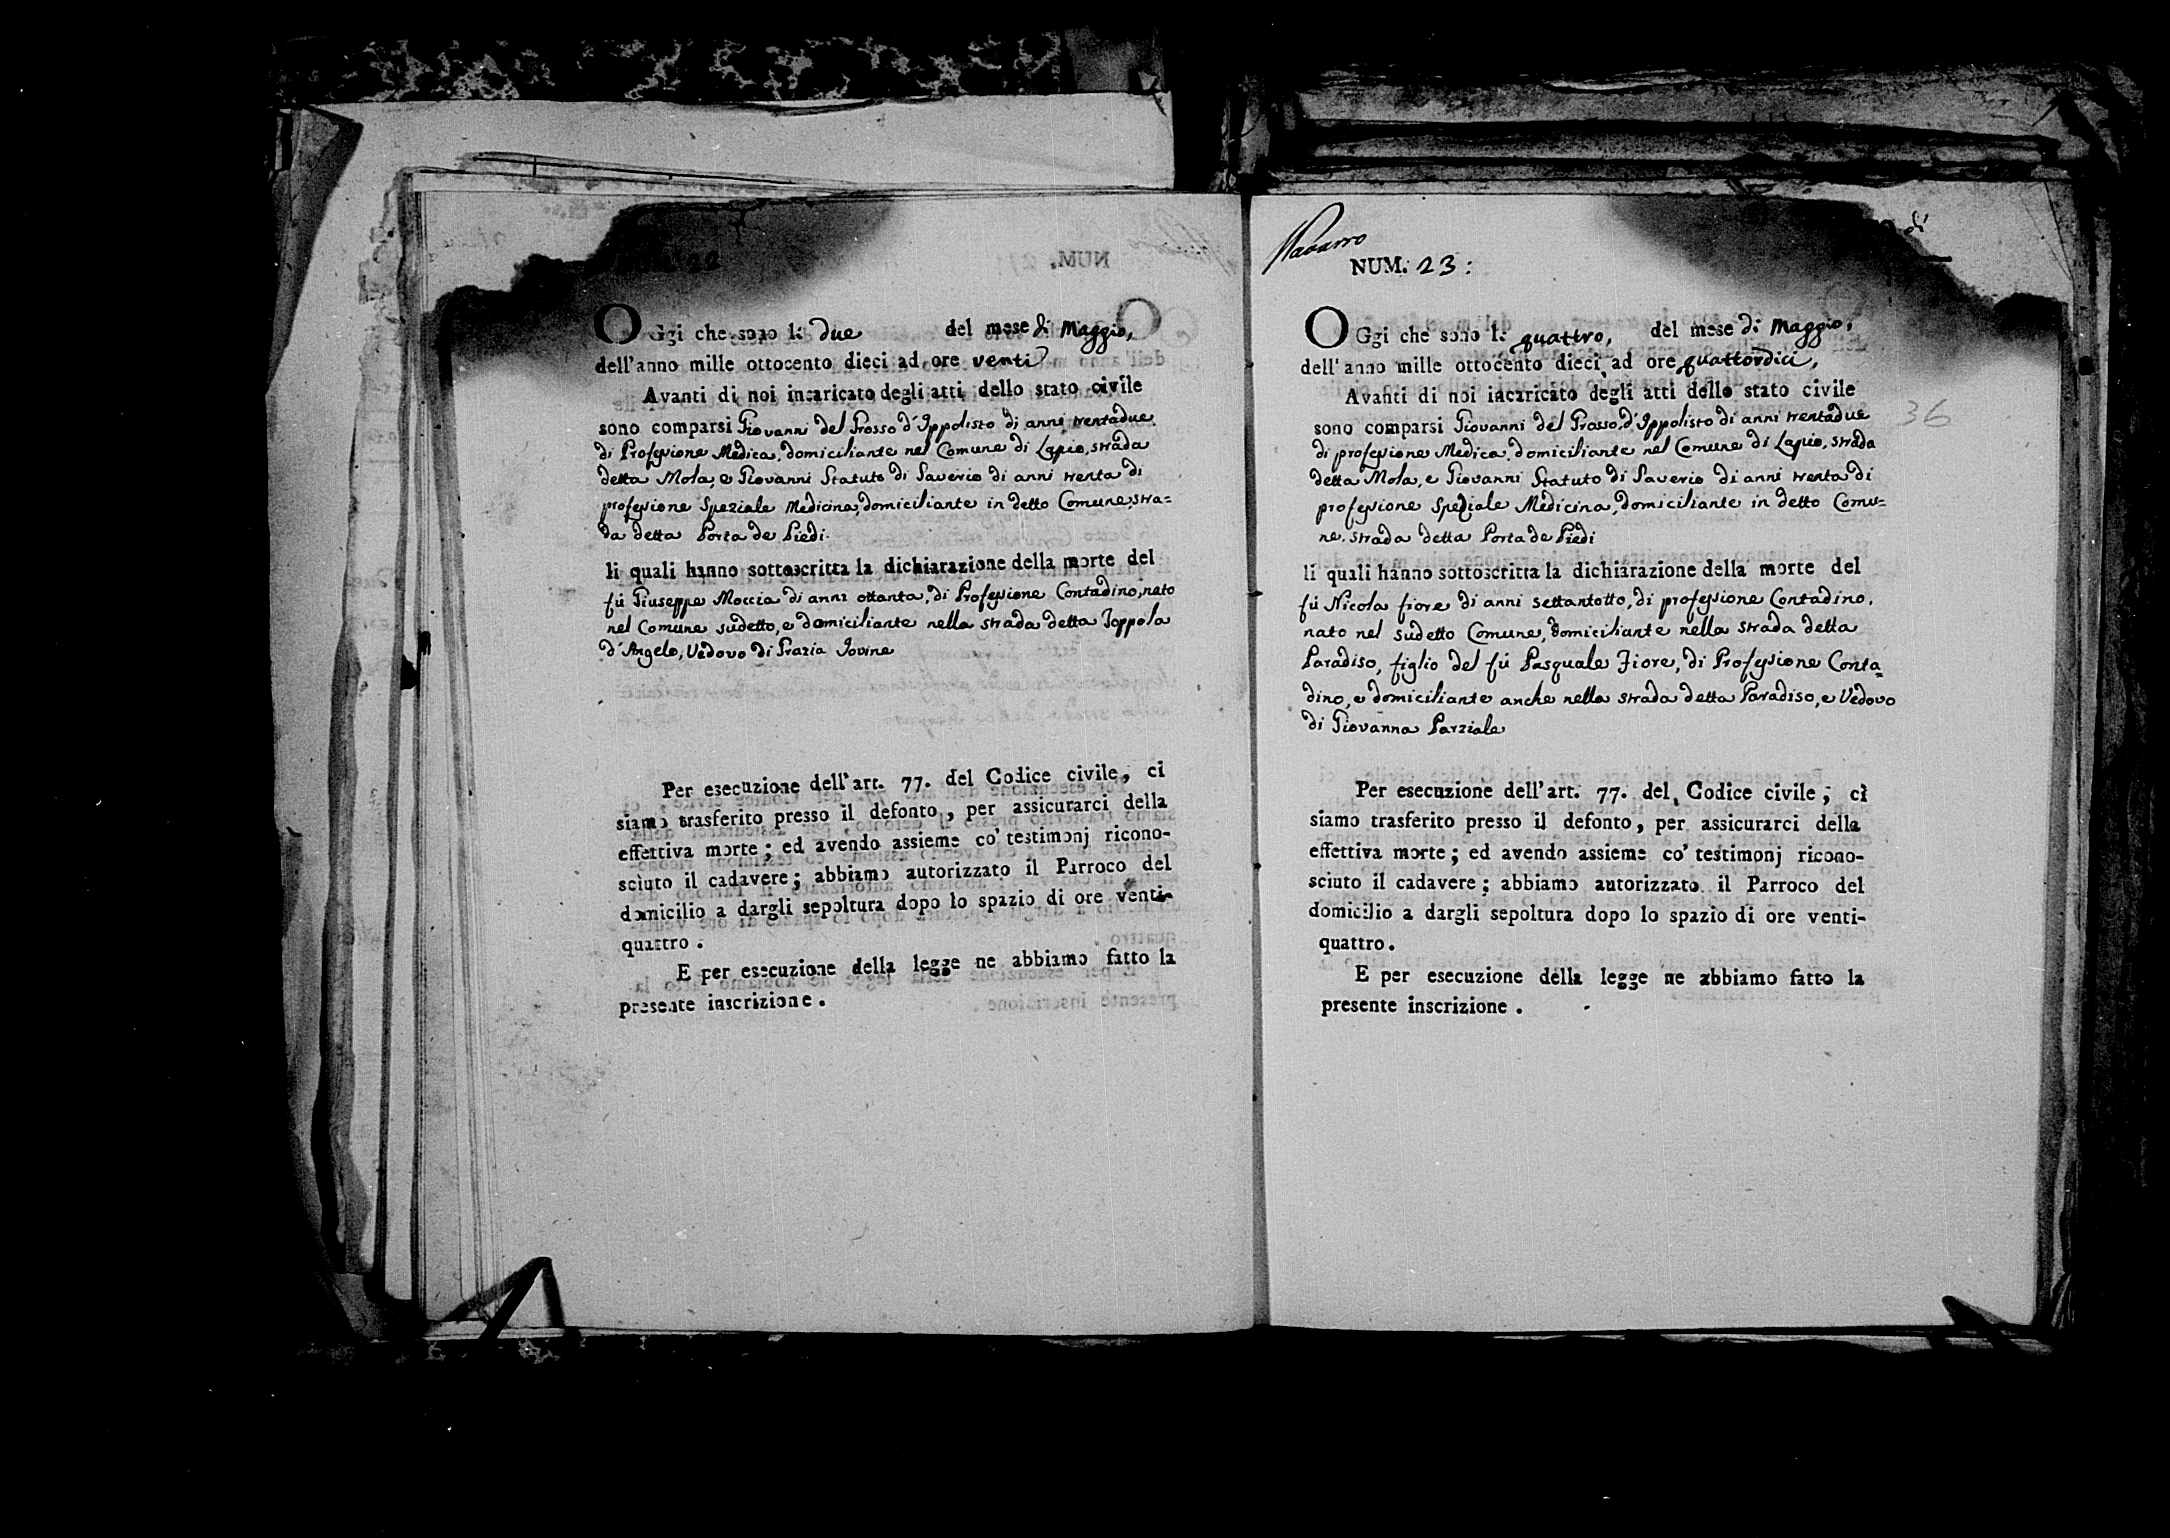 22
OGgi che sono li due del mese di Maggio,
dell'anno mille ottocento dieci ad ore venti
Avanti di noi incaricato degli atti dello stato civile
sono comparsi Giovanni del Grosso d'Ippolisto di anni trentadue
di Professione Medica, domiciliante nel Comune di Lapio, strada
detta Mola, e Giovanni Statuto di Saverio di anni trenta di
professione Speziale Medicina, domiciliante in detto Comune, stra=
da detta Porta de Piedi.
li quali hanno sottoscritta la dichiarazione della morte del
fù Giuseppe Moccia di anni ottanta, di Professione Contadino, nato
nel Comune sudetto, e domiciliante nella strada detta Toppola
d'Angelo, Vedovo di Grazia Iovine
Per esecuzione dell'art. 77. del Codice civile, ci
siamo trasferito presso il defonto, per assicurarci della
effettiva morte; ed avendo assieme co' testimonj ricono-
sciuto il cadavere; abbiamo autorizzato il Parroco del
domicilio a dargli sepoltura dopo lo spazio di ore venti-
quattro.
E per esecuzione della legge ne abbiamo fatto la
presente inscrizione.
Navarro
di
NUM. 23:
OGgi che sono li quattro, del mese di Maggio,
dell'anno mille ottocento dieci ad ore quattordici,
Avanti di noi incaricato degli atti dello stato civile
36
sono comparsi Giovanni del Grosso, d'Ippolisto di anni trentadue
di professione Medica, domiciliante nel Comune di Lapio, strada
detta Mola, e Giovanni Statuto di Saverio di anni trenta di
professione Speziale Medicina, domiciliante in detto Comu=
ne, strada detta Porta de Piedi
li quali hanno sottoscritta la dichiarazione della morte del
fù Nicola fiore di anni settantotto, di professione Contadino,
nato nel sudetto Comune, domiciliante nella strada detta
Paradiso, figlio del fù Pasquale Fiore, di Professione Conta=
dino, e domiciliante anche nella strada detta Paradiso, e Vedovo
di Giovanna Parziale
Per esecuzione dell'art. 77. del Codice civile; cì
siamo trasferito presso il defonto, per assicurarci della
effettiva morte; ed avendo assieme co' testimonj ricono-
sciuto il cadavere; abbiamo autorizzato il Parroco del
domicilio a dargli sepoltura dopo lo spazio di ore venti-
quattro.
E per esecuzione della legge ne abbiamo fatto la
presente inscrizione.